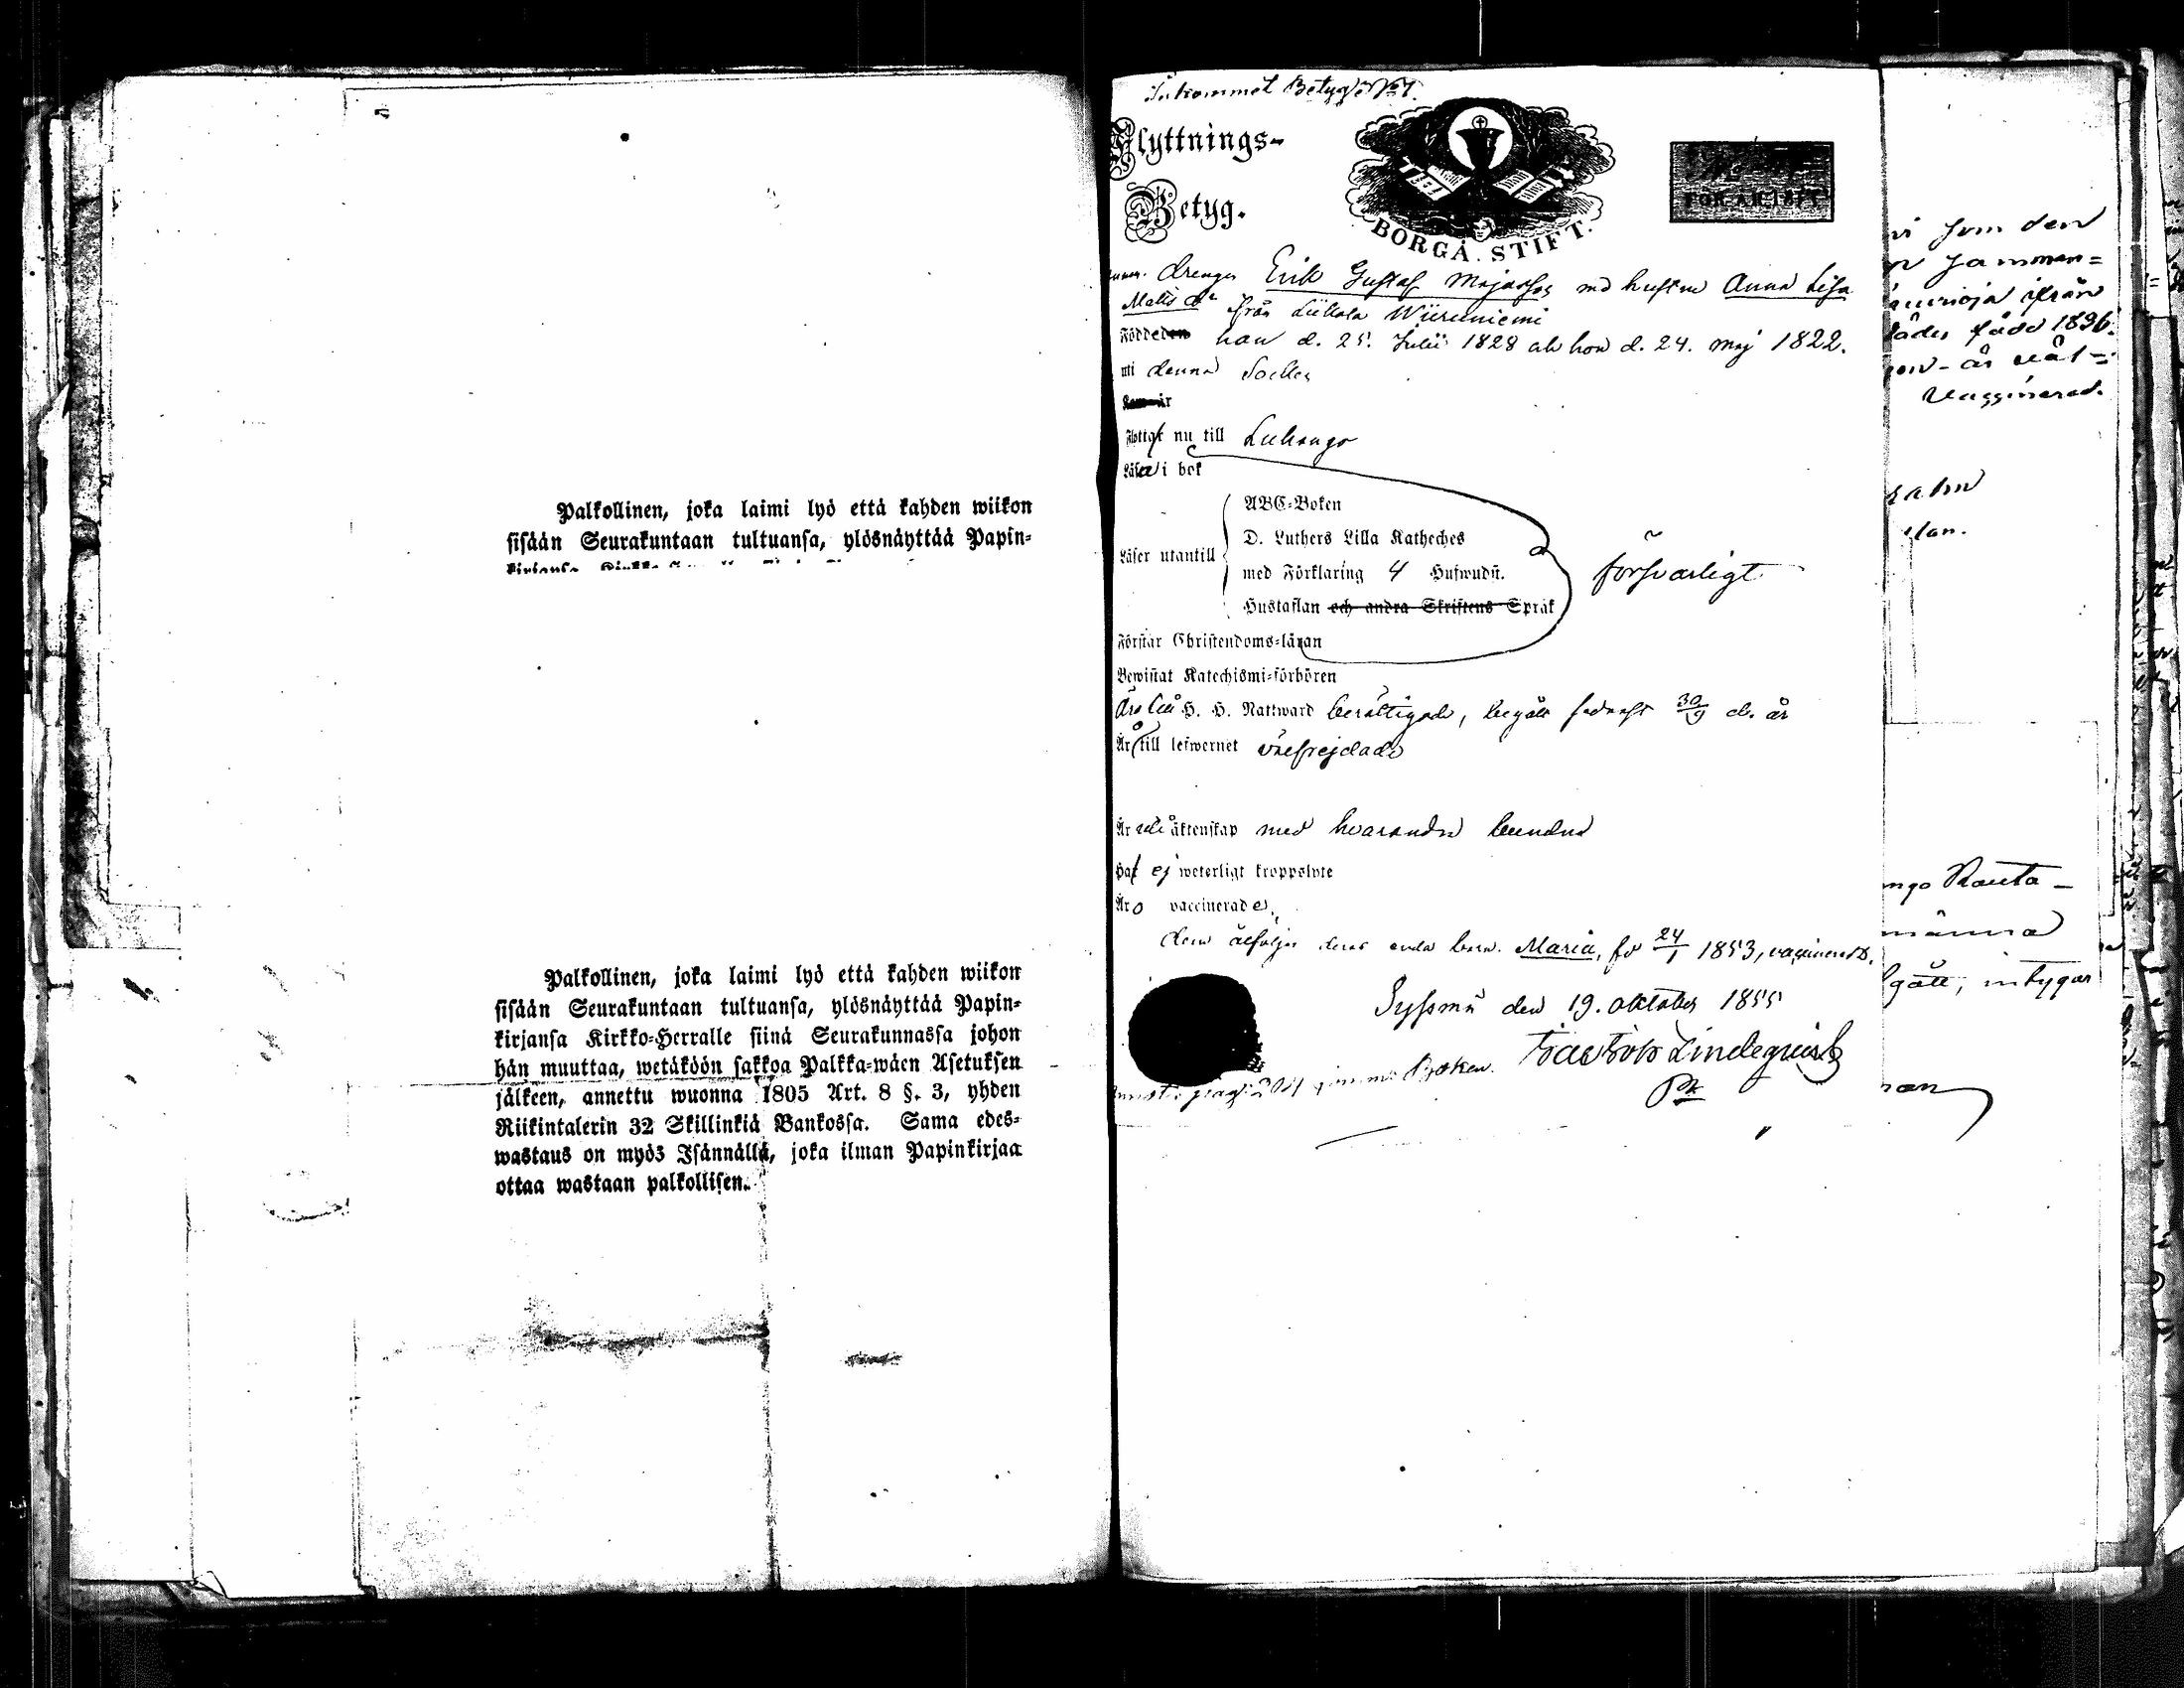 Palkollinen, joka laimi lyö että kahden wiikon
sisään Seurakuntaan tultuansa, ylösnäyttää Papin-
Palkollinen, joka laimi lyö että kahden wiikon
sisään Seurakuntaan tultuansa, ylösnäyttää Papin-
kirjansa Kirkko-Herralle siinä Seurakunnassa johon
hän muuttaa, wetäköön sakkoa Palkka-wäen Asetuksen
jälkeen, annettu wuonna 1805 Art. 8 §. 3, yhden
Riikintalerin 32 Skillinkiä Bankossa. Sama edes-
wastaus on myös Isännällä, joka ilman Papinkirjaa
ottaa wastaan palkollisen.
Inkommet Betyg No 1.
Flyttnings-
Betyg.
BORGÅ STIFT.
Drengen Erik Gustaf Majasson med hustru Anna Lisa
Matts dr från Liikola Wiiruniemi
Födde han d. 25. Julii 1828 och hon d. 24. Maj 1822.
uti denna Socken
Flyttat nu till Luhango
Läsa i bok
ABC-Boken
D. Luthers Lilla Katheches
Läser utantill
med Förklaring 4 Hufwudst.
Hustaflan och andra Skriftens Språk
försvarligt
Förstår Christendoms-läran
Bewistat Katechismi-förhören
Äro till H. H. Nattward berättigade, begått sednast 30/9 d. år
Äro till lefwernet välfrejdade
Är uti äktenskap med hvarandra bundna
Haf ej weterligt kroppslyte
Äro vaccinerade.
dem åtföljer deras enda barn Maria, fö 24/1 1853, vaccinerad.
Syssmä den 19. oktober 1855
Lindequist
vi som den
sammen-
ifrån
född 1836.
är väl-
vaccinerad.
Rauta-
intygar